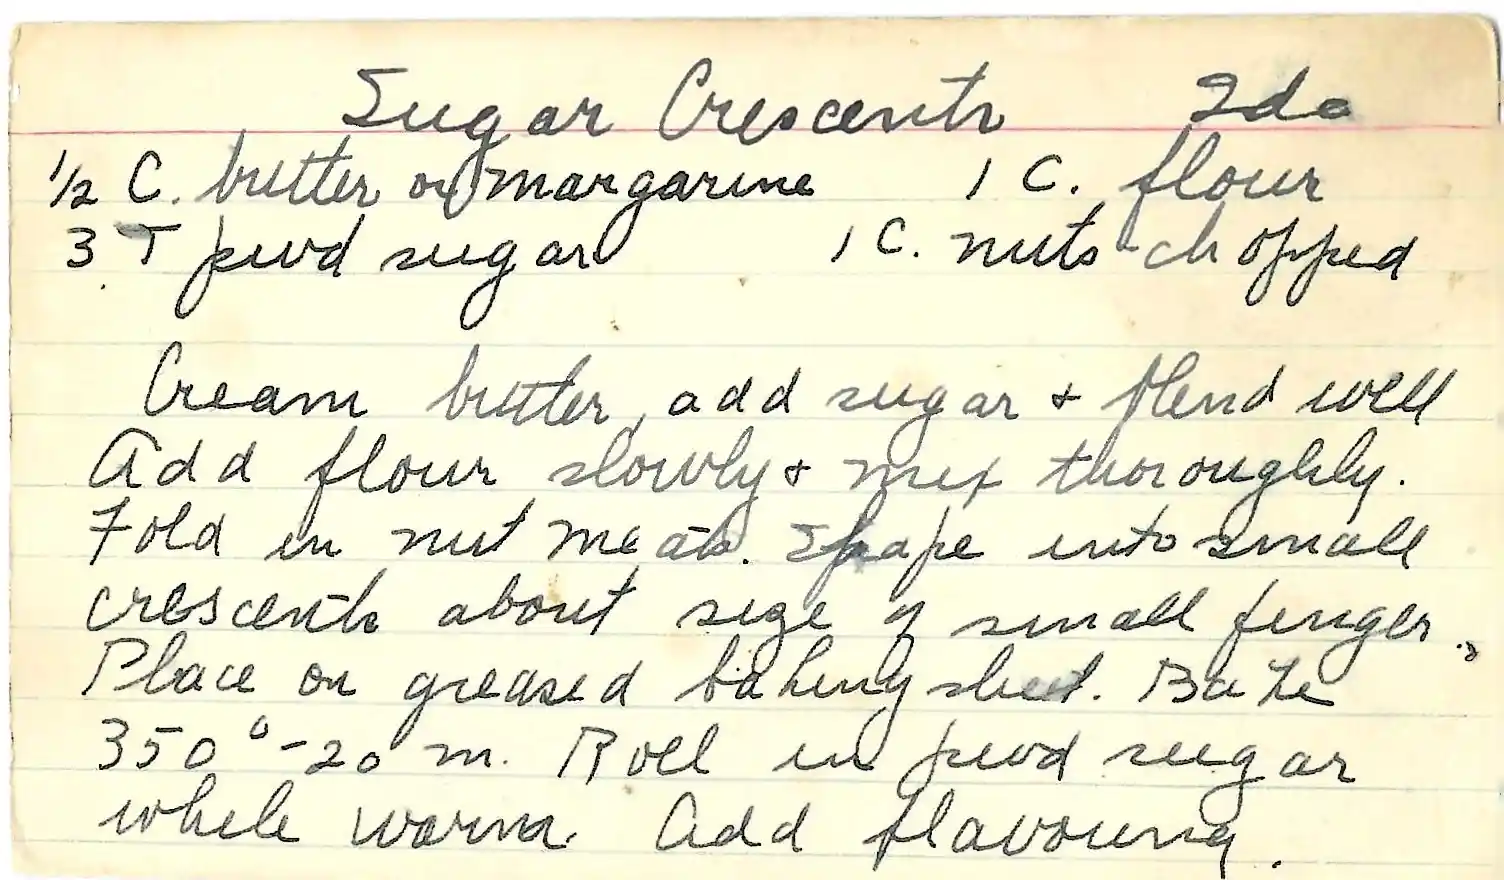 Sugar Crescents 2do
1/2 C. butter or margarine 1 C. flour
3 T pwd sugar 1 C. nuts-chopped
Cream butter, add sugar + blend well
Add flour slowly + mix thoroughly.
Fold in nut meats. Shape into small
crescents about size of small finger.
Place on greased baking sheet. Bake
350° - 20 m. Roll in pwd sugar
while warm. Add flavouring.